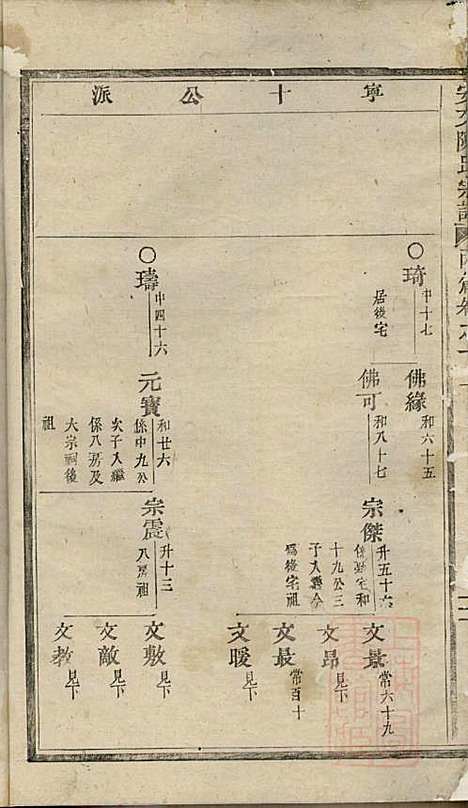 安文陳氏宗譜
寧十公派
○琦
中十七
居後宅
佛緣
和六十五
佛可
和八十七
宗傑
升五十六
係
宅和
十九公三
子入繼今
爲後宅祖
文景
常六十九
文昂
見下
文最
常百十
文暖
見下
○璹
中四十六
元寶
和廿六
係中九公
次子入繼
係八房及
大宗祠後
祖
宗震
升十三
八房祖
文敷
見下
文敵
見下
文教
見下